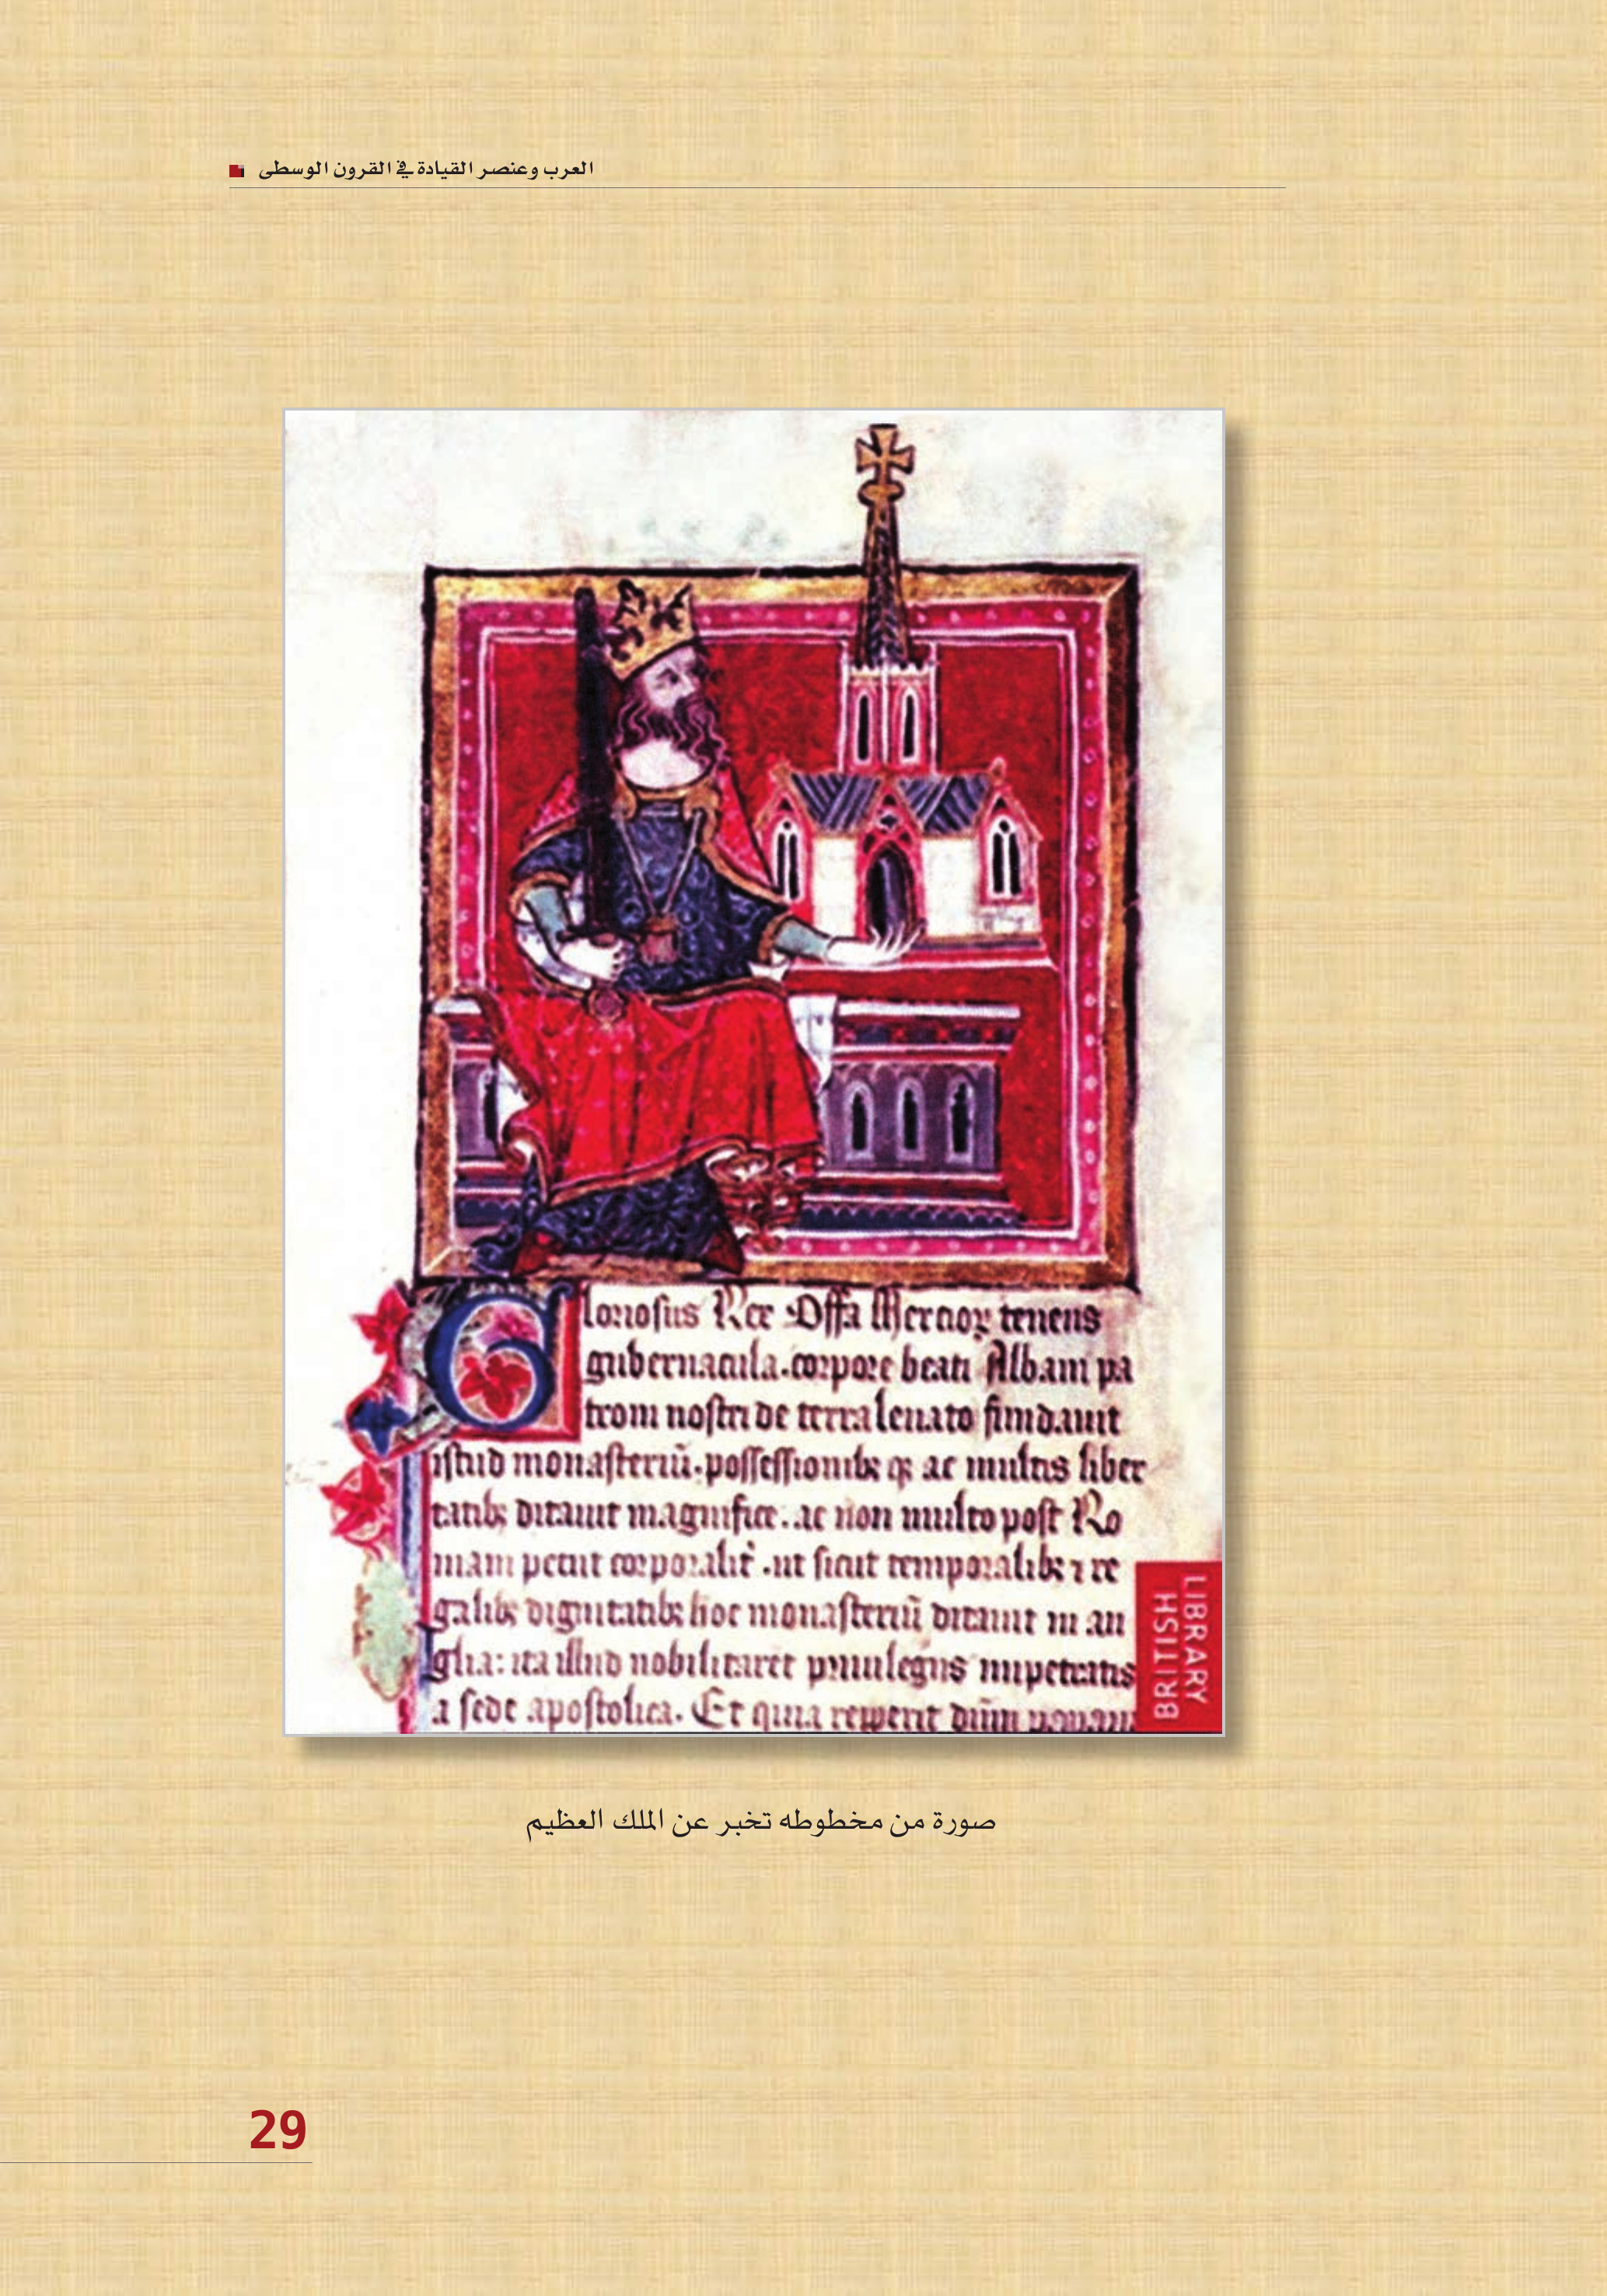 العرب وعنصر القيادة في القرون الوسطى
Gloriosus Rex Offa Mercioꝝ tenens
gubernacula. corpore beati Albani pa
troni nostri de terra leuato fundauit
istud monasteriũ. possessionibꝫ qꝫ ac multis liber
tatibꝫ ditauit magnifice. ac non multo post Ro
mam petiit corporalit̾. ut sicut temporalibꝫ ⁊ re
galibꝫ dignitatibꝫ hoc monasteriũ ditauit in an
glia: ita illud nobilitaret priuilegiis impetratis
a sede apostolica. Et quia repperit
BRITISH
LIBRARY
صورة من مخطوطه تخبر عن الملك العظيم
29